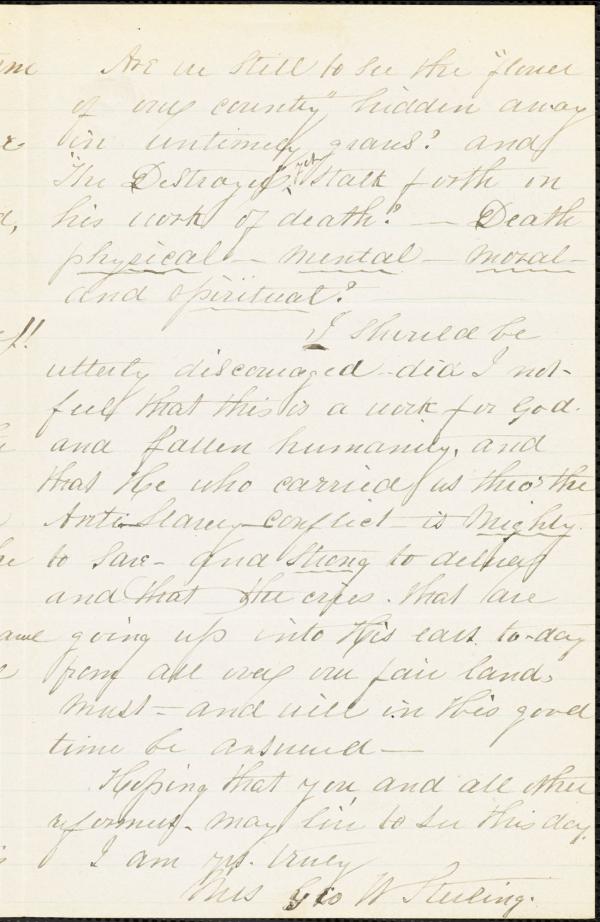 Are we still to see the "flower
of our country" hidden away
in untimely graves? and
"The Destroyer" yet stalk forth on
his work of death? — Death
physical — mental — moral —
and spiritual?
I should be
utterly discouraged - did I not -
feel that this is a work for God.
and fallen humanity. and
that He who carried us thro' the
Anti-Slavery conflict - is Mighty.
to save - and strong to deliver
and that the cries. that are
going up into His ears to-day
from all over our fair land,
must - and will in His good
time be answered —
Hoping that you and all other
reformers - may live to see this day.
I am yrs. truly
Mrs Geo W Sterling.